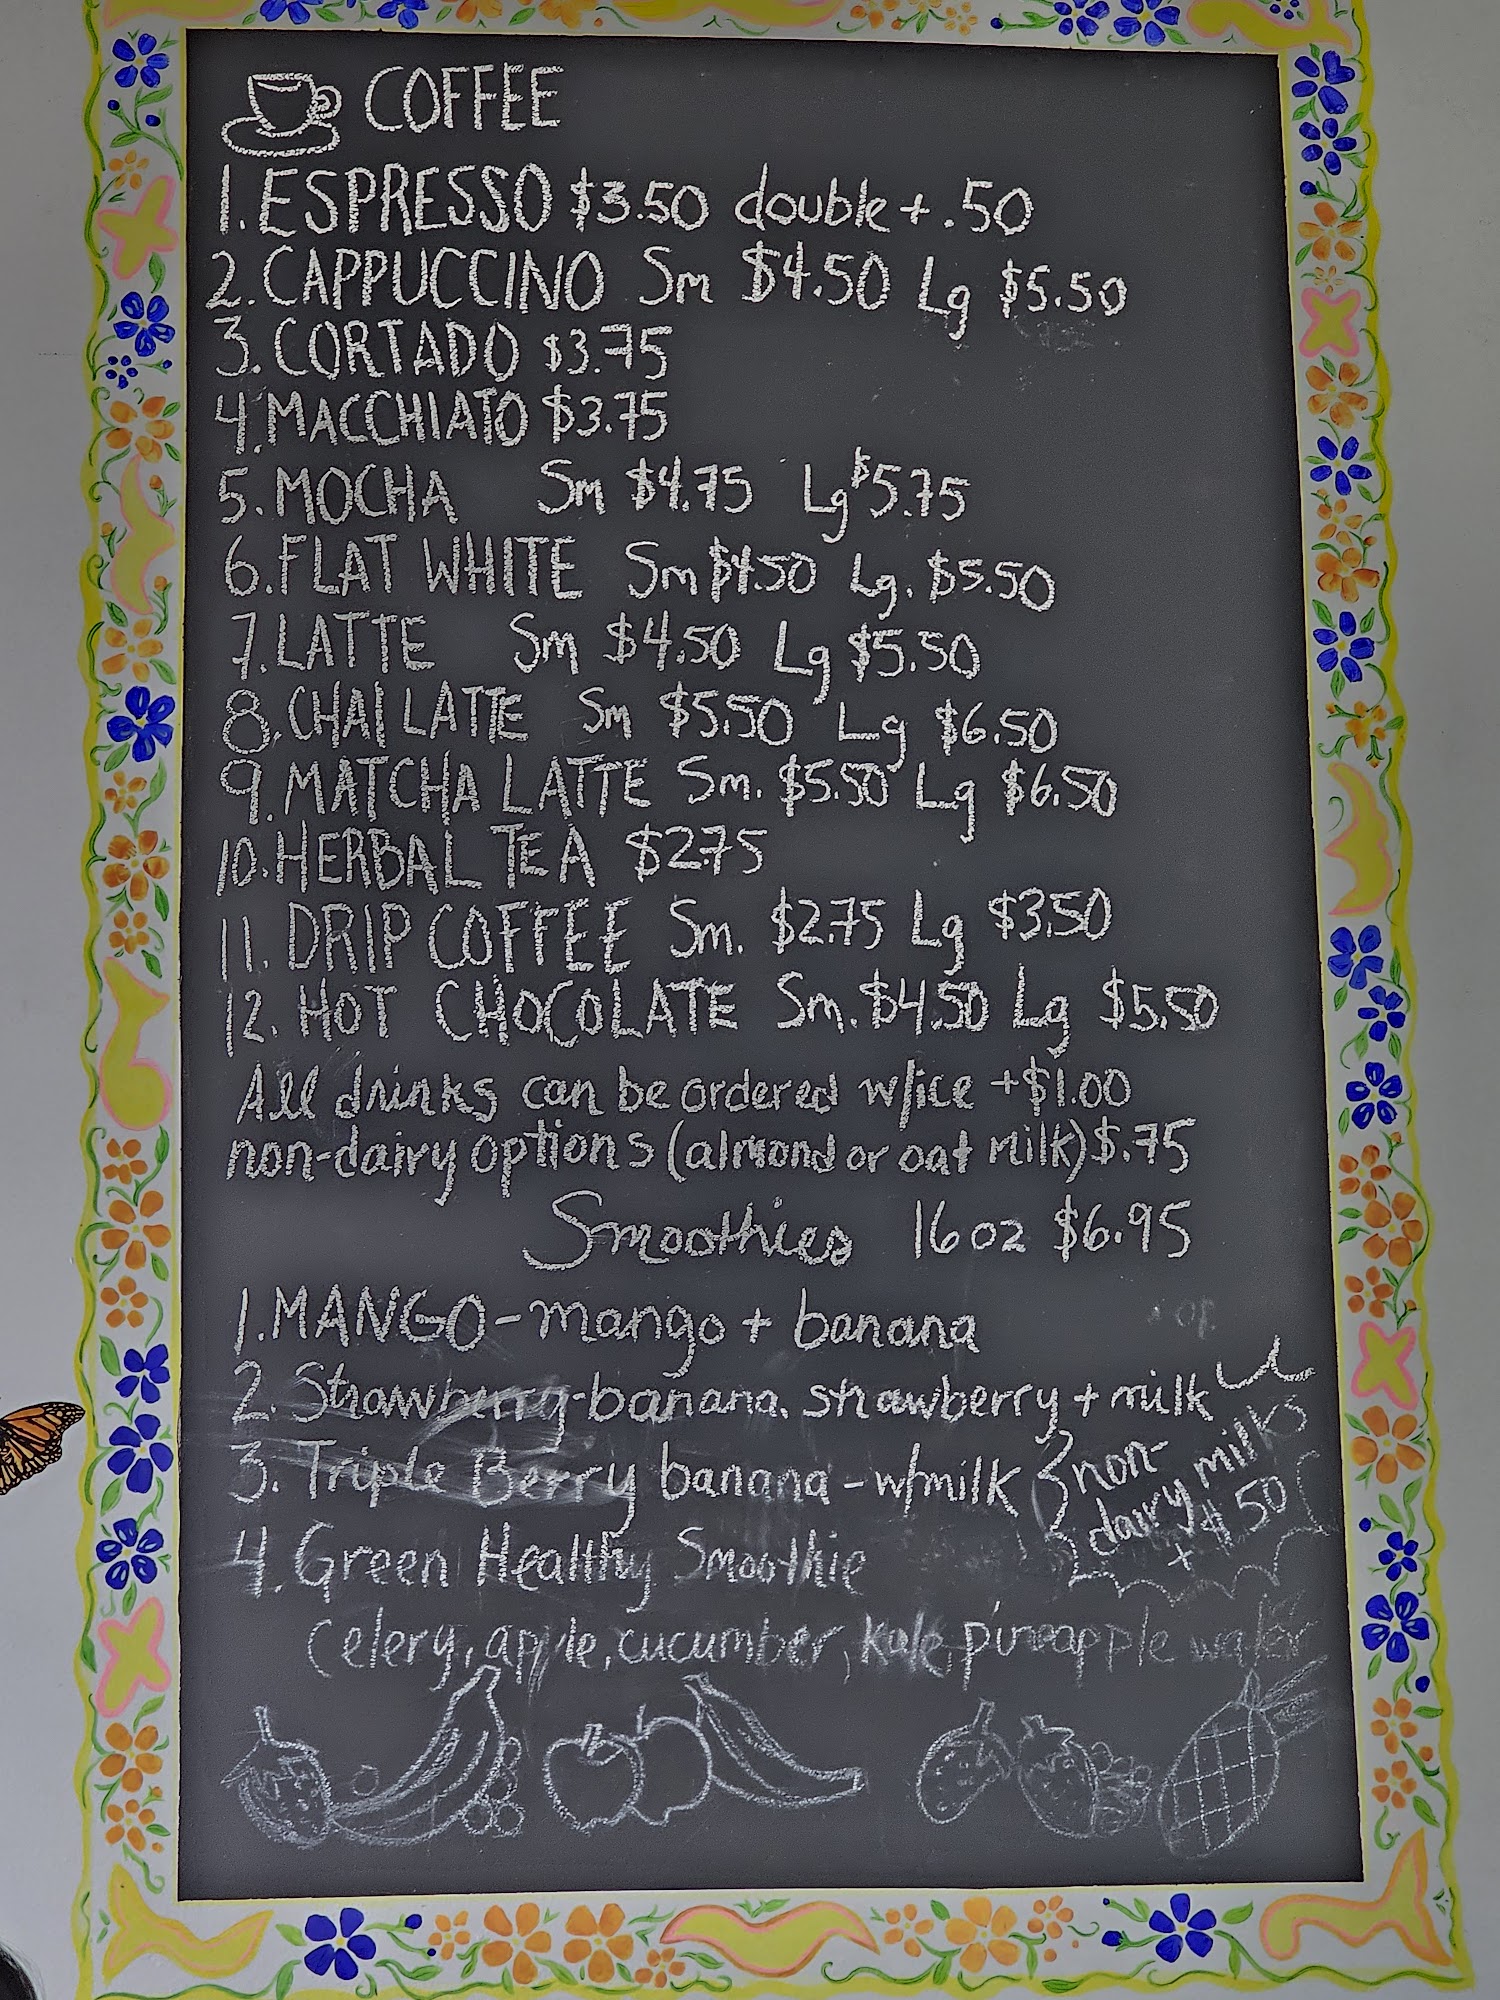 COFFEE
1. ESPRESSO $3.50 double + .50
2. CAPPUCCINO Sm $4.50 Lg $5.50
3. CORTADO $3.75
4. MACCHIATO $3.75
5. MOCHA Sm $4.75 Lg $5.75
6. FLAT WHITE Sm $4.50 Lg. $5.50
7. LATTE Sm $4.50 Lg $5.50
8. CHAI LATTE Sm $5.50 Lg $6.50
9. MATCHA LATTE Sm. $5.50 Lg $6.50
10. HERBAL TEA $2.75
11. DRIP COFFEE Sm. $2.75 Lg $3.50
12. HOT CHOCOLATE Sm. $4.50 Lg $5.50
All drinks can be ordered w/ice +$1.00
non-dairy options (almond or oat milk) $.75
Smoothies 16 oz $6.95
1. MANGO - mango + banana
2. Strawberry-banana. strawberry + milk
3. Triple Berry banana - w/milk
non-
dairy milks
+ $ .50
4. Green Healthy Smoothie
celery, apple, cucumber, kale, pineapple water